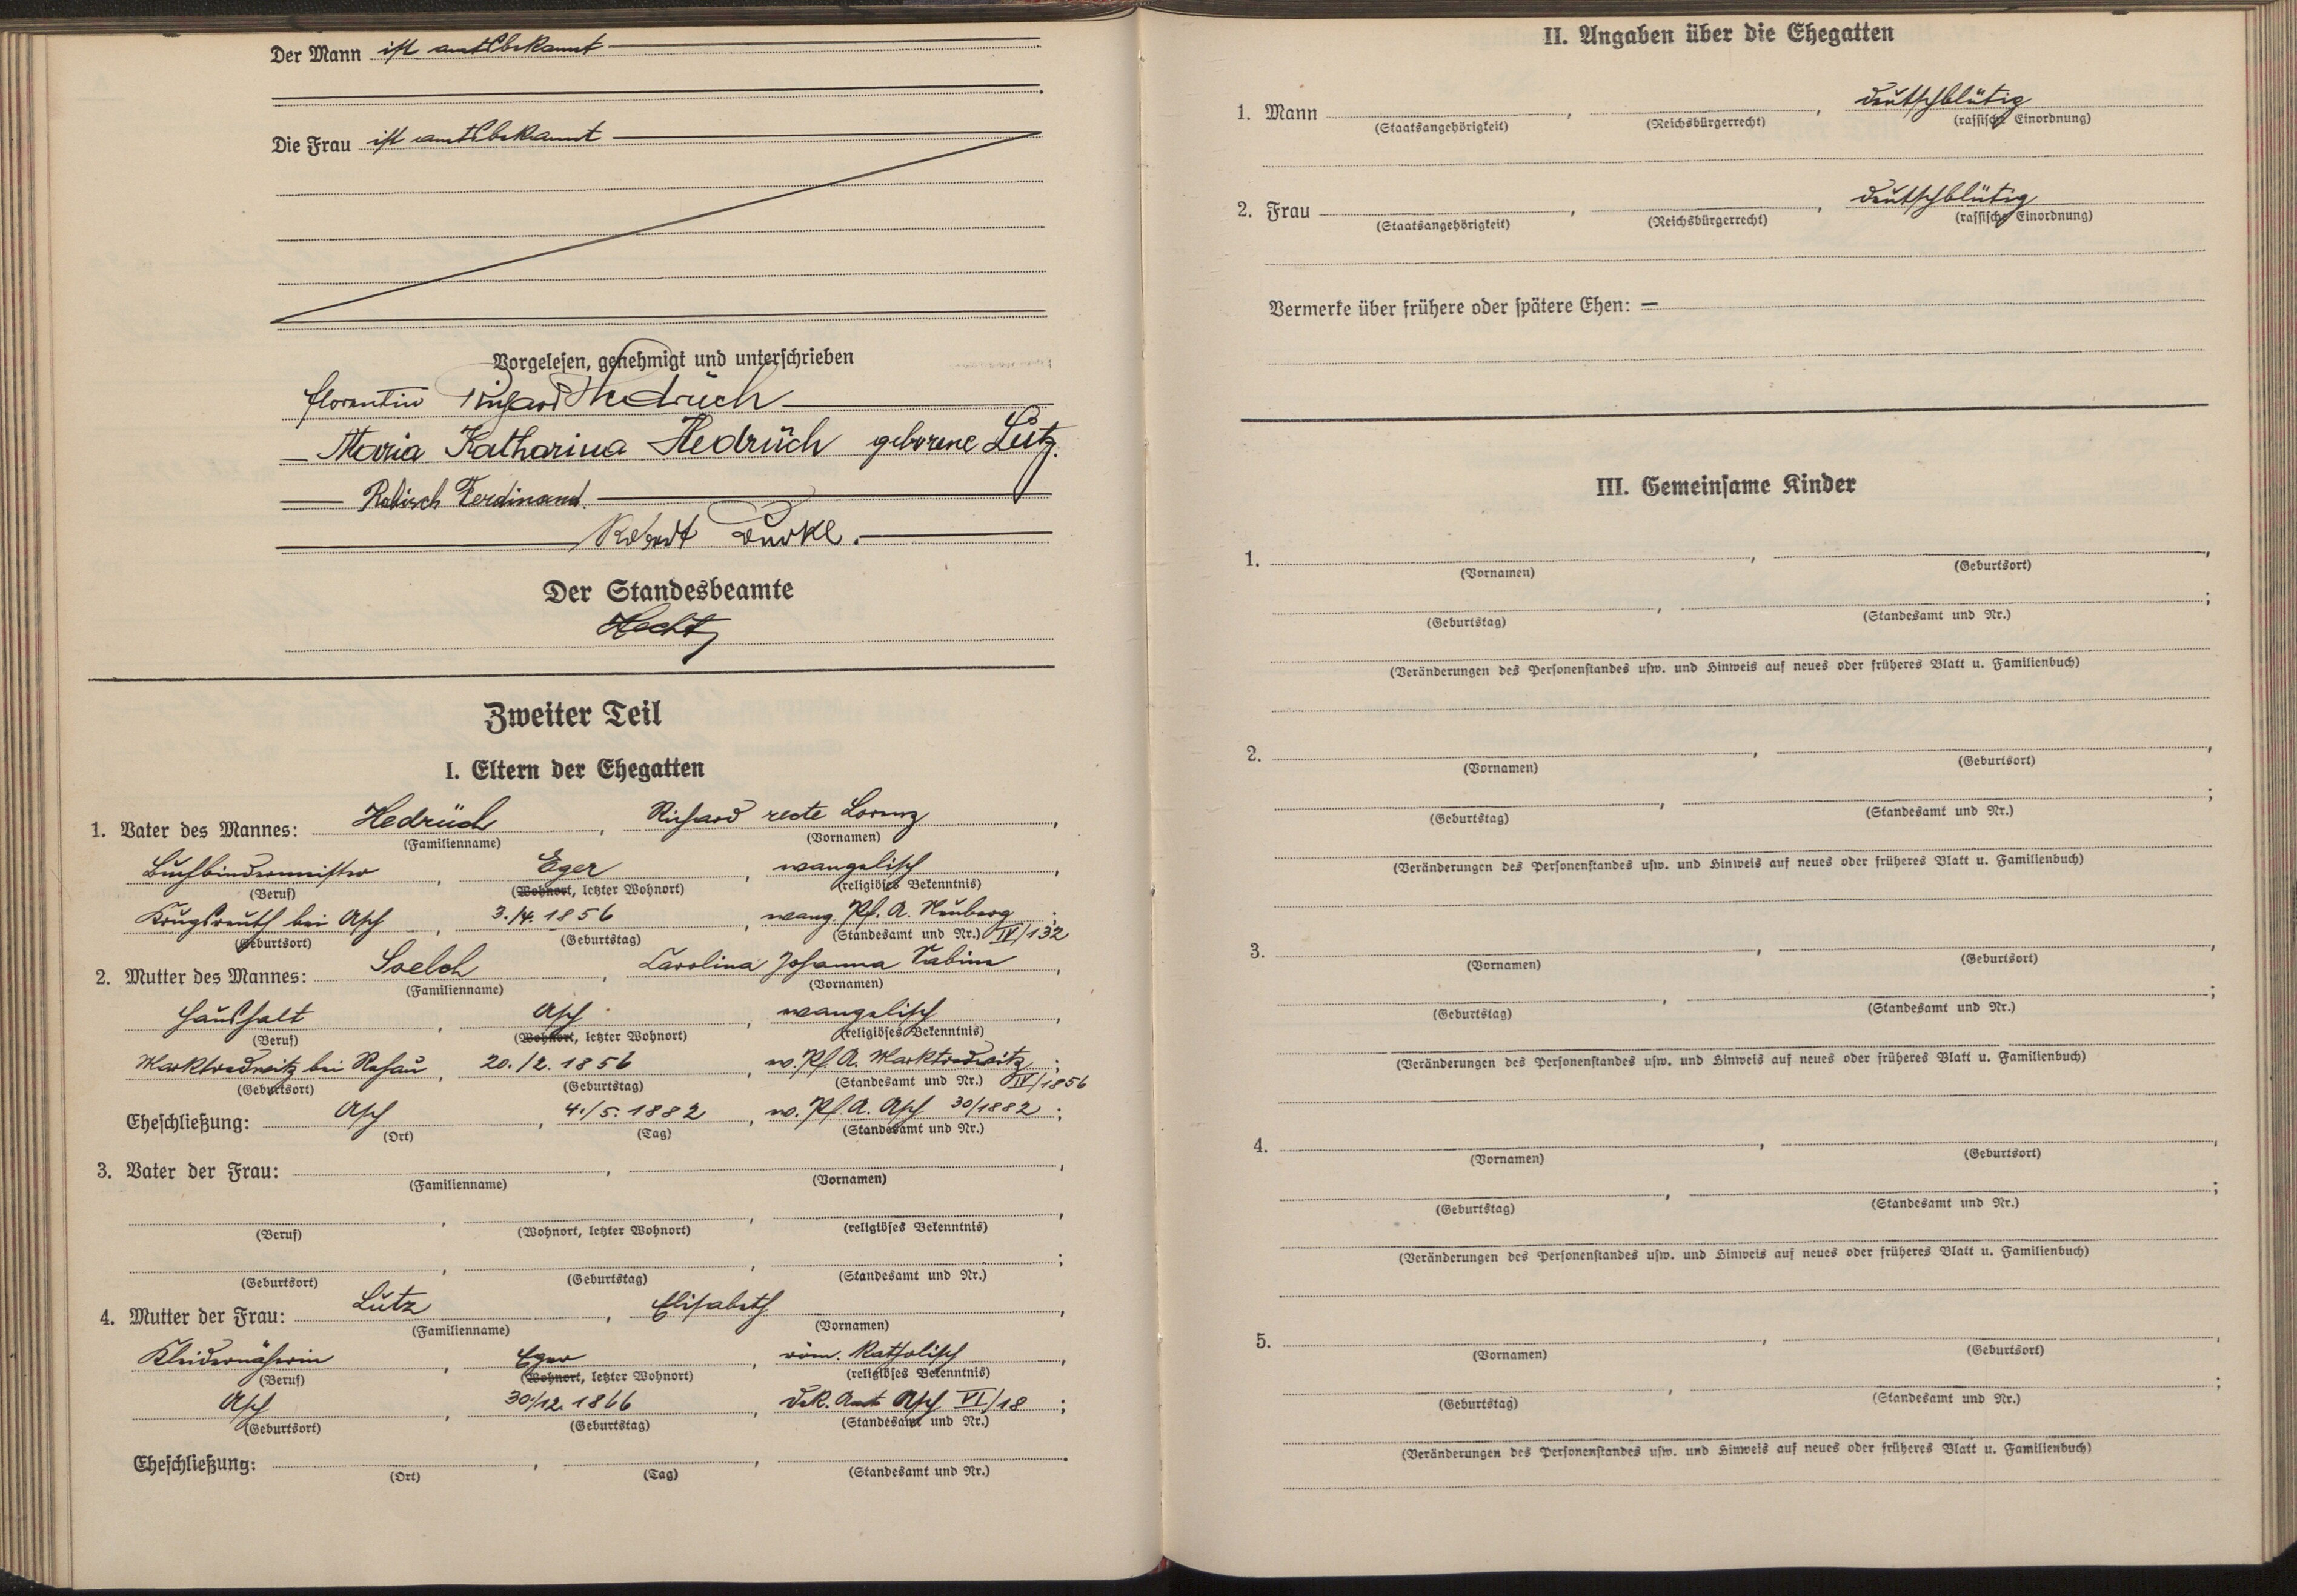 Der Mann ist amtsbekannt
Die Frau ist amtsbekannt
Vorgelesen, genehmigt und unterschrieben
Florentin Richard Hedrüch
Maria Katharina Hedrüch geborene Lutz.
Rabisch Ferdinand.
Der Standesbeamte
Hecht
Zweiter Teil
I. Eltern der Ehegatten
1. Vater des Mannes: Hedrüch, Richard recte Lorenz,
(Familienname) (Vornamen)
Buchbindermeister, Eger, evangelisch,
(Beruf) (Wohnort, letzter Wohnort) (religiöses Bekenntnis)
Krugsreuth bei Asch, 3./4. 1856, evang. Pf. A. Neuberg;
(Geburtsort) (Geburtstag) (Standesamt und Nr.) IV/132
2. Mutter des Mannes: Soelch, Carolina Johanna Sabina,
(Familienname) (Vornamen)
Haushalt, Asch, evangelisch,
(Beruf) (Wohnort, letzter Wohnort) (religiöses Bekenntnis)
Marktredwitz bei Rehau, 20./2. 1856, ev. Pf. A. Marktredwitz;
(Geburtsort) (Geburtstag) (Standesamt und Nr.) IV/1856
Eheschließung: Asch, 4./5. 1882, ev. Pf. A. Asch 30/1882;
(Ort) (Tag) (Standesamt und Nr.)
3. Vater der Frau: , ,
(Familienname) (Vornamen)
, , ,
(Beruf) (Wohnort, letzter Wohnort) (religiöses Bekenntnis)
, , ;
(Geburtsort) (Geburtstag) (Standesamt und Nr.)
4. Mutter der Frau: Lutz, Elisabeth,
(Familienname) (Vornamen)
Kleidernäherin, Eger, röm. katholisch,
(Beruf) (Wohnort, letzter Wohnort) (religiöses Bekenntnis)
Asch, 30/12. 1866, Amt Asch VI/18;
(Geburtsort) (Geburtstag) (Standesamt und Nr.)
Eheschließung: , , .
(Ort) (Tag) (Standesamt und Nr.)
II. Angaben über die Ehegatten
1. Mann , , deutschblütig
(Staatsangehörigkeit) (Reichsbürgerrecht) (rassische Einordnung)
2. Frau , , deutschblütig
(Staatsangehörigkeit) (Reichsbürgerrecht) (rassische Einordnung)
Vermerke über frühere oder spätere Ehen: —
III. Gemeinsame Kinder
1. , ,
(Vornamen) (Geburtsort)
, ;
(Geburtstag) (Standesamt und Nr.)
(Veränderungen des Personenstandes usw. und Hinweis auf neues oder früheres Blatt u. Familienbuch)
2. , ,
(Vornamen) (Geburtsort)
, ;
(Geburtstag) (Standesamt und Nr.)
(Veränderungen des Personenstandes usw. und Hinweis auf neues oder früheres Blatt u. Familienbuch)
3. , ,
(Vornamen) (Geburtsort)
, ;
(Geburtstag) (Standesamt und Nr.)
(Veränderungen des Personenstandes usw. und Hinweis auf neues oder früheres Blatt u. Familienbuch)
4. , ,
(Vornamen) (Geburtsort)
, ;
(Geburtstag) (Standesamt und Nr.)
(Veränderungen des Personenstandes usw. und Hinweis auf neues oder früheres Blatt u. Familienbuch)
5. , ,
(Vornamen) (Geburtsort)
, ;
(Geburtstag) (Standesamt und Nr.)
(Veränderungen des Personenstandes usw. und Hinweis auf neues oder früheres Blatt u. Familienbuch)